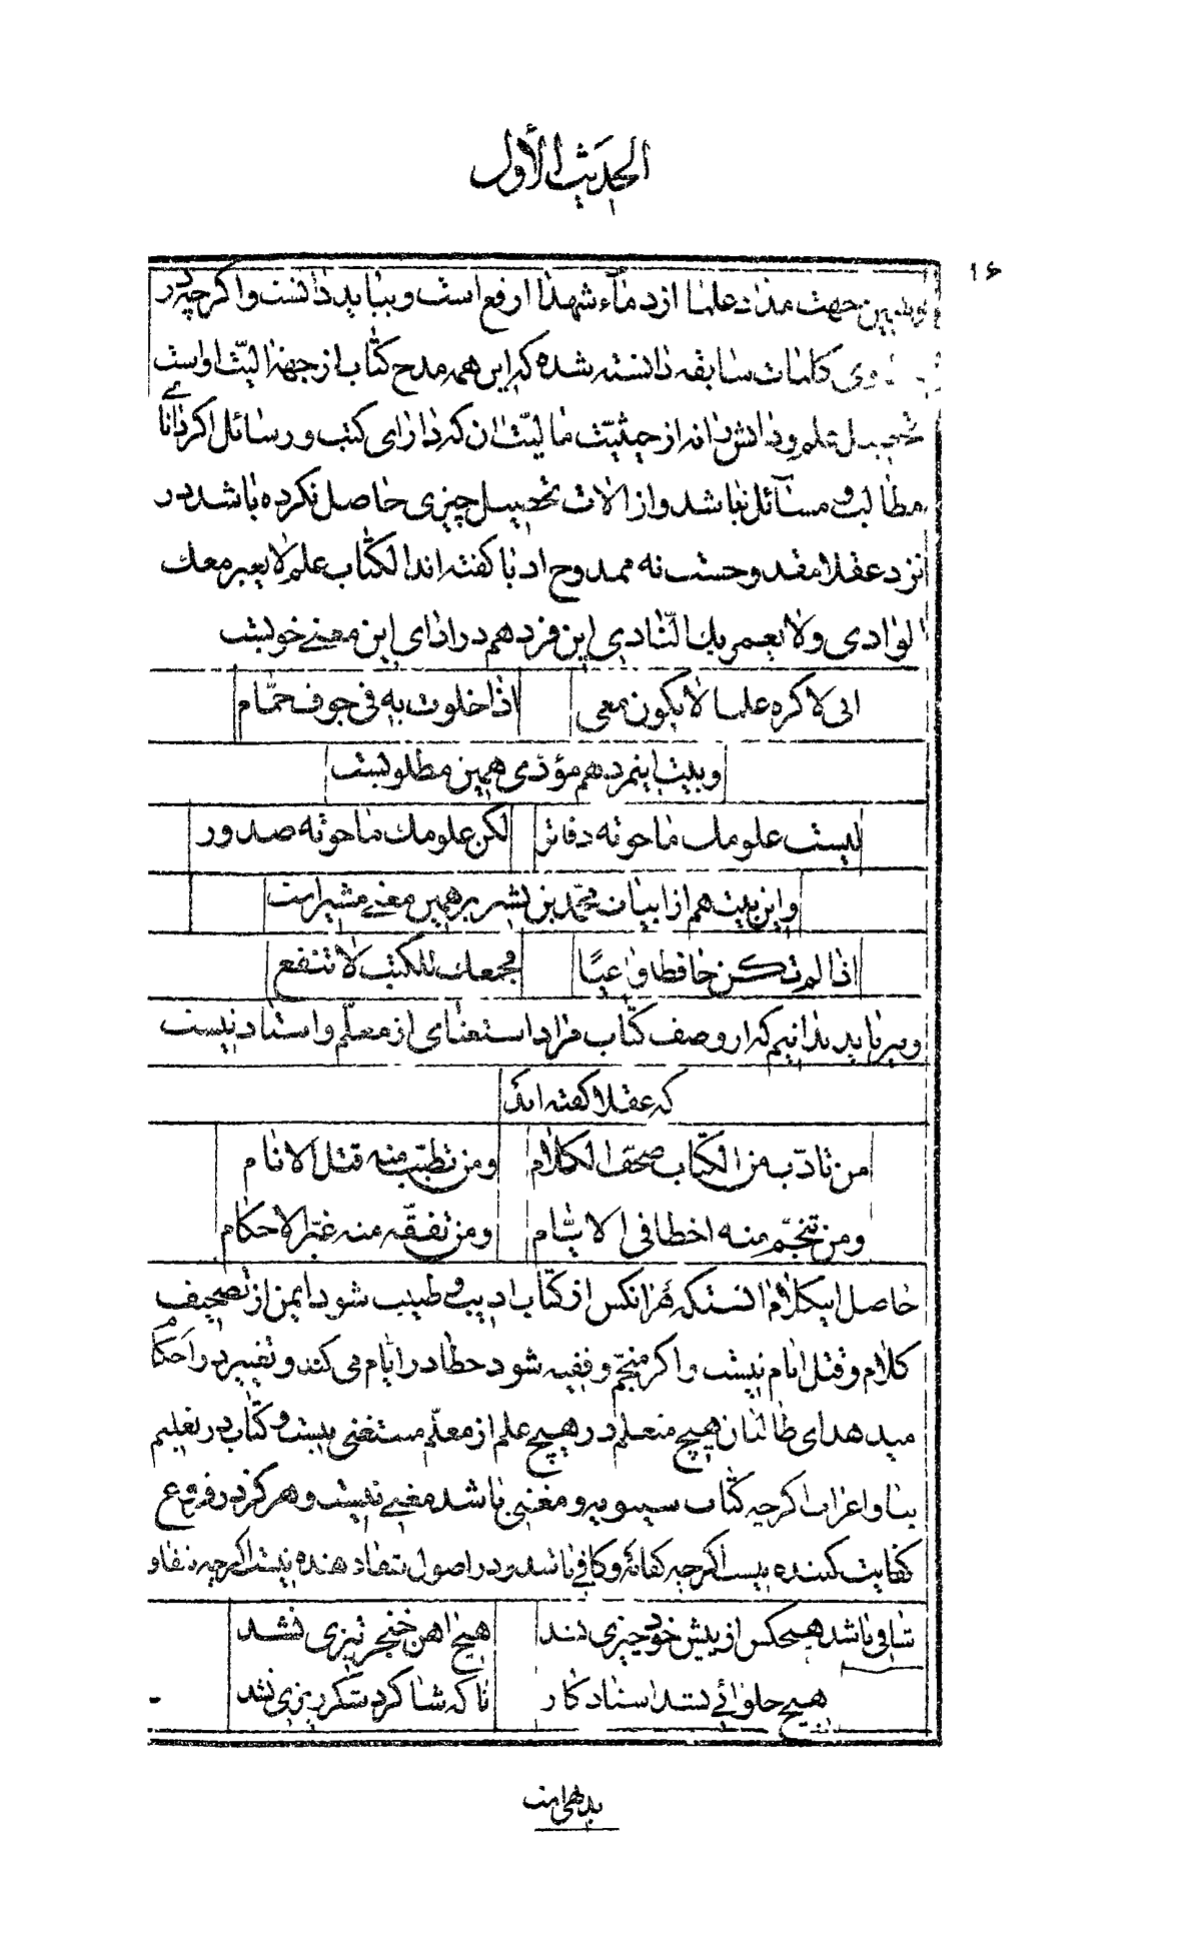 الحدیث الأول
۱۶
جهت مداد علما از دماء شهدا ارفع است و بباید دانست و اگر چه در
کلمات سابقه دانسته شده که این همه مدح کتاب از جهة الیّت او است
تحصیل علم و دانش را نه از حیثیّت مالیّت ان که دارای کتب و رسائل اگر دانای
مطالب و مسائل نباشد و از الات تحصیل چیزی حاصل نکرده باشد در
نزد عقلا مقدوحست نه ممدوح ادبا گفته اند الکتاب علم لا یعبر معك
الوادی ولا یعمر بك النّادی این فرد هم در ادای این معنی خوبست
انی لاکره علما لا یکون معی اذا خلوت به فی جوف حمّام
و بیت اینمرد هم مؤدّی همین مطلوبست
لیست علومك ما حوته دفاتر لکن علومك ما حوته صدور
و این بیت هم از ابیات محمّد بن بشیر بر همین معنی مشیر است
اذا لم تکن حافظا واعیًا فجمعك للکتب لا تنفع
و میباید بدانیم که از وصف کتاب مراد استغنای از معلّم و استاد نیست
که عقلا گفته اند
من تادّب من الکتاب صحّف الکلام ومن تطبّب منه قتل الانام
ومن تنجّم منه اخطا فی الایّام ومن تفقّه منه غیّر الاحکام
حاصل اینکلام انستکه هر انکس از کتاب ادیب و طبیب شود ایمن از تصحیف
کلام و قتل انام نیست و اگر منجّم و فقیه شود خطا در ایّام می کند و تغییر در احکام
میدهد ای طالبان هیچ متعلم در هیچ علم از معلّم مستغنی نیست و کتاب در تعلیم
بنا و اعراب اگر چه کتاب سیبویه و مغنی باشد مغنی نیست و هرگز در فروع
کفایت کننده نیست اگر چه کفایه و کافی باشد و در اصول شفا دهنده نیست اگر چه شفا و
شافی باشد هیچکس از پیش خود چیزی نشد هیچ اهن خنجر تیزی نشد
هیچ حلوائی نشد استاد کار تا که شاگرد شکر ریزی نشد
بدیهی است